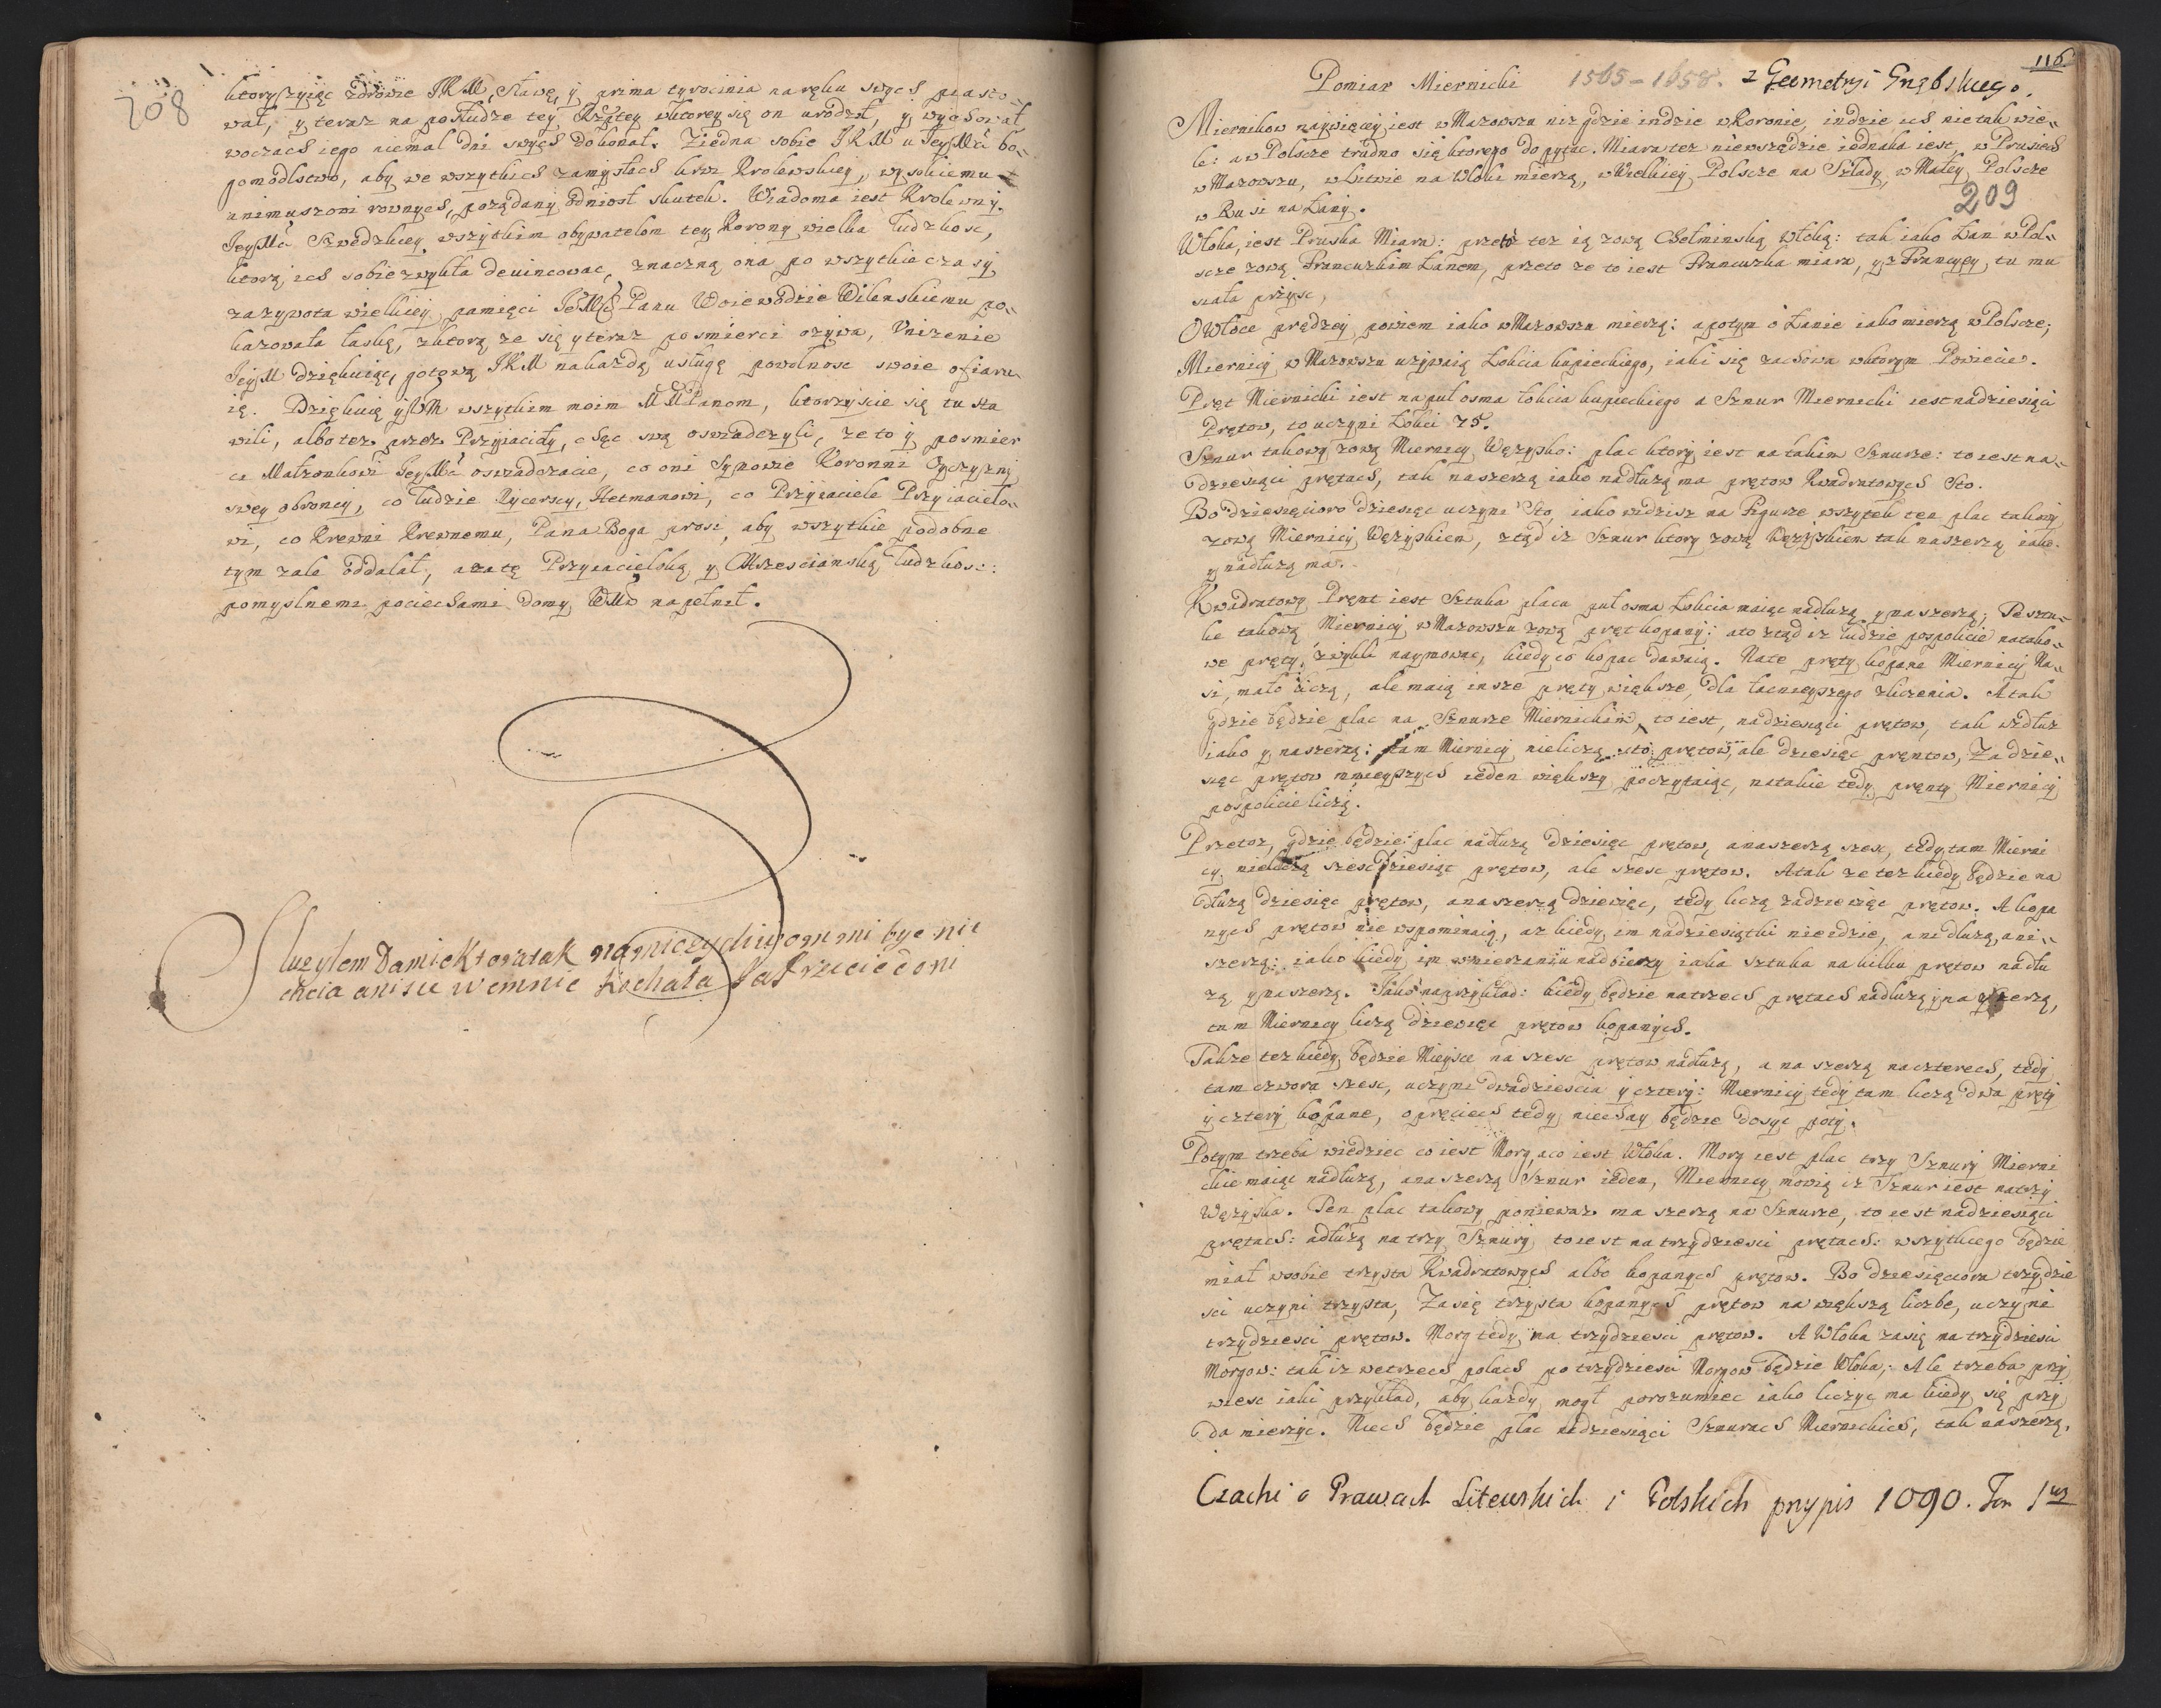 208
ktory szyiąc zdrowie JKM, sławę, y prima tyrocinia na ręku swych piasto„
wał, y teraz na posłudze tey Rzptey wktorey się on urodził, y wychował
woczach iego niemal dni swych dokonał. Ziedna sobie JKM u JeyMci bo„
gomodlstwo, aby we wszytkich zamysłach krwi Krolewskiey, wysokiemu
animuszowi rownych, pożądany odniosł skutek. Wiadoma iest Krolewny
JeyMci Szwedzkiey wszytkim obywatelom tey Korony wielka ludzkosc,
ktorą ich sobie zwykła devincowac, znaczną ona po wszytkie czasy
zazywota wielkiey pamięci JeMCi Panu Woiewodzie Wilenskiemu po„
kazowała łaskę, zktorą ze się y teraz po smierci ozywa, Unizenie
JeyM dziękuiąc, gotową JKM nakazdą usługę powolnosc swoie ofiaru„
ię. Dziękuię y WM wszytkim moim MMPanom, ktorzyscie się tu sta
wili, albo tez przez Przyiacioły, chęc swą oswiadczyli, ze to y po smier
ci Małzonkowi JeyMci oswiadczacie, co oni Synowie Koronni Oyczyzny
swey obroncy, co ludzie Rycerscy, Hetmanowi, co Przyiaciele Przyiacielo„
wi, co Krewni Krewnemu, Pana Boga prosi, aby wszytkie podobne
tym zale oddalał, a za tę Przyiacielską y Chrzescianską ludzkosc:
pomyslnemi pociechami domy WMci napełnił.
Sluzylem Damie Ktora tak namniezycliwom mi byc nie
chcia ani sie wemnie kochała
116
Pomiar Miernicki 1565-1658. z Geometryi Grzębskiego.
Miernikow naywięcey iest w Mazowszu niz gdzie indzie w Koronie, indzie ich nie tak wie„
le: a w Polscze trudno się ktorego dopytac. Miara tez nie wszędzie iednaka iest, w Prusiech
w Mazowszu, w Litwie na Włoki mierzą, w Wielkiey Polscze na Szlady, w Małey Polscze
w Rusi na Łany.
209
Włoka, iest Pruska Miara: przeto tez ią zową Chełminską Włoką: tak iako Łan w Pol„
scze zową Francuzkim Łanem, przeto ze to iest Francuzka miara, y z Francyey tu mu
siała przysc,
O Włoce prędzey powiem iako w Mazowszu mierzą: a potym o Łanie iako mierzą w Polscze;
Miernicy w Mazowszu uzywaią Łokcia kupieckiego, iaki się zachowa w ktorym Powiecie.
Pręt Miernicki iest na puł osma łokcia kupieckiego a Sznur Miernicki iest na dziesiąci
Prętow, to uczyni Łokci 75.
Sznur takowy zową Miernicy Wężysko: plac ktory iest na takim Sznurze: to iest na„
dziesiąci prętach, tak na szerzą iako nadłużą ma prętow Kwadratowych Sto.
Bo dziesięcioro dziesięc uczyni Sto, iako widzisz na Figurze wszytek ten plac takowy
zową Miernicy Wężyskiem, ztąd iz Sznur ktory zową Wężyskiem tak na szerzą iako
y nadłużą ma.
Kwadratowy Pręnt iest Sztuka placu puł osma Łokcia maiąc nadłużą y na szerzą; Te sztu„
kę takową Miernicy w Mazowszu zową pręt kopany: a to ztąd iz ludzie pospolicie na tako„
we pręty zwykli naymowac, kiedy co kopac dawaią. Na te pręty kopane Miernicy Na„
si, mało liczą, ale maią insze pręty większe, dla łacnieyszego zliczenia. A tak
gdzie będzie plac na Sznurze Miernickim, to iest, na dziesiąci prętow, tak wzdłuz
iako y na szerzą: tam Miernicy nie liczą sto prętow, ale dziesięc pręntow, Za dzie„
sięc prętow mnieyszych ieden większy poczytaiąc, na takie tedy pręnty Miernicy
pospolicie liczą.
Przetoz, gdzie będzie plac nadłużą dziesięc prętow, a na szerzą szesc, tedy tam Mierni
cy nie liczą szescdziesiąt prętow, ale szesc prętow. A tak ze tez kiedy będzie na
dłużą dziesięc prętow, a na szerzą dziewięc, tedy liczą za dziewięc prętow. A kopa
nych prętow nie wspominaią, az kiedy im na dziesiątki nie idzie, ani dłużą, ani„
szerzą: iako kiedy im w mierzaniu nadbierzy iaka sztuka na kilku prętow nadłu
żą y na szerzą. Jako naprzykład: kiedy będzie na trzech prętach nadłużą y na szerzą,
tam Miernicy liczą dziewięc prętow kopanych.
Takze tez kiedy będzie Mieysce na szesc prętow nadłużą, a na szerzą na czterech, tedy
tam czwora szesc, uczyni dwadziescia y cztery: Miernicy tedy tam liczą dwa pręty
y cztery kopane, o pręciech tedy niechay będzie dosyc poty.
Potym trzeba wiedziec co iest Morg, a co iest Włoka. Morg iest plac trzy Sznury Mierni
ckie maiąc nadłużą, a na szerzą Sznur ieden, Miernicy mowią iz Sznur iest na trzy
Wężyska. Ten plac takowy poniewaz ma szerzą na Sznurze, to iest na dziesiąci
prętach: a dłużą na trzy Sznury, to iest na trzydziesci prętach: wszytkiego będzie
miał w sobie trzysta Kwadratowych albo kopanych prętow. Bo dziesięciora trzydzie
sci uczyni trzysta, Zasię trzysta kopanych prętow na większą liczbę, uczyni
trzydziesci prętow. Morg tedy ma trzydziesci prętow. A Włoka zasię ma trzydziesci
Morgow: tak iz we trzech polach po trzydziesci Morgow będzie Włoka; Ale trzeba przy
wiesc iaki przykład, aby kazdy mogł porozumiec iako liczyc ma kiedy się przy
da mierzyc. Niech będzie plac na dziesiąci Sznurach Miernickich, tak na szerzą,
Czacki o Prawach Litewskich i Polskich przypis 1090. Tom 1szy